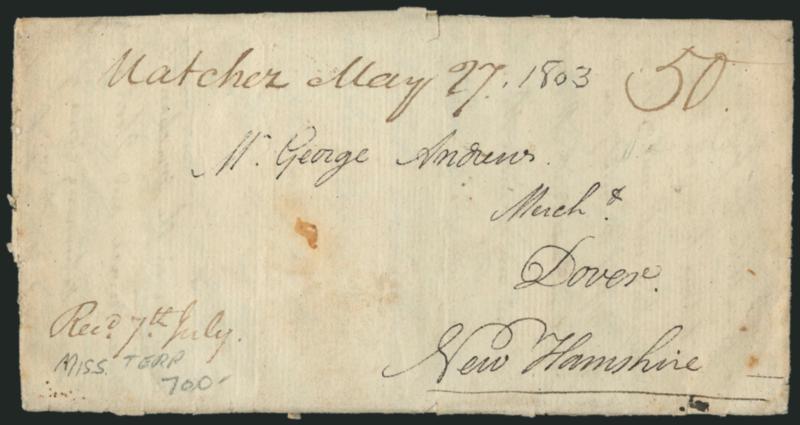 Natchez May 27. 1803 50.
Mr. George Andrews.
Mercht.
Dover.
New Hamshire
Recd. 7th July.
MISS. TERR
700-